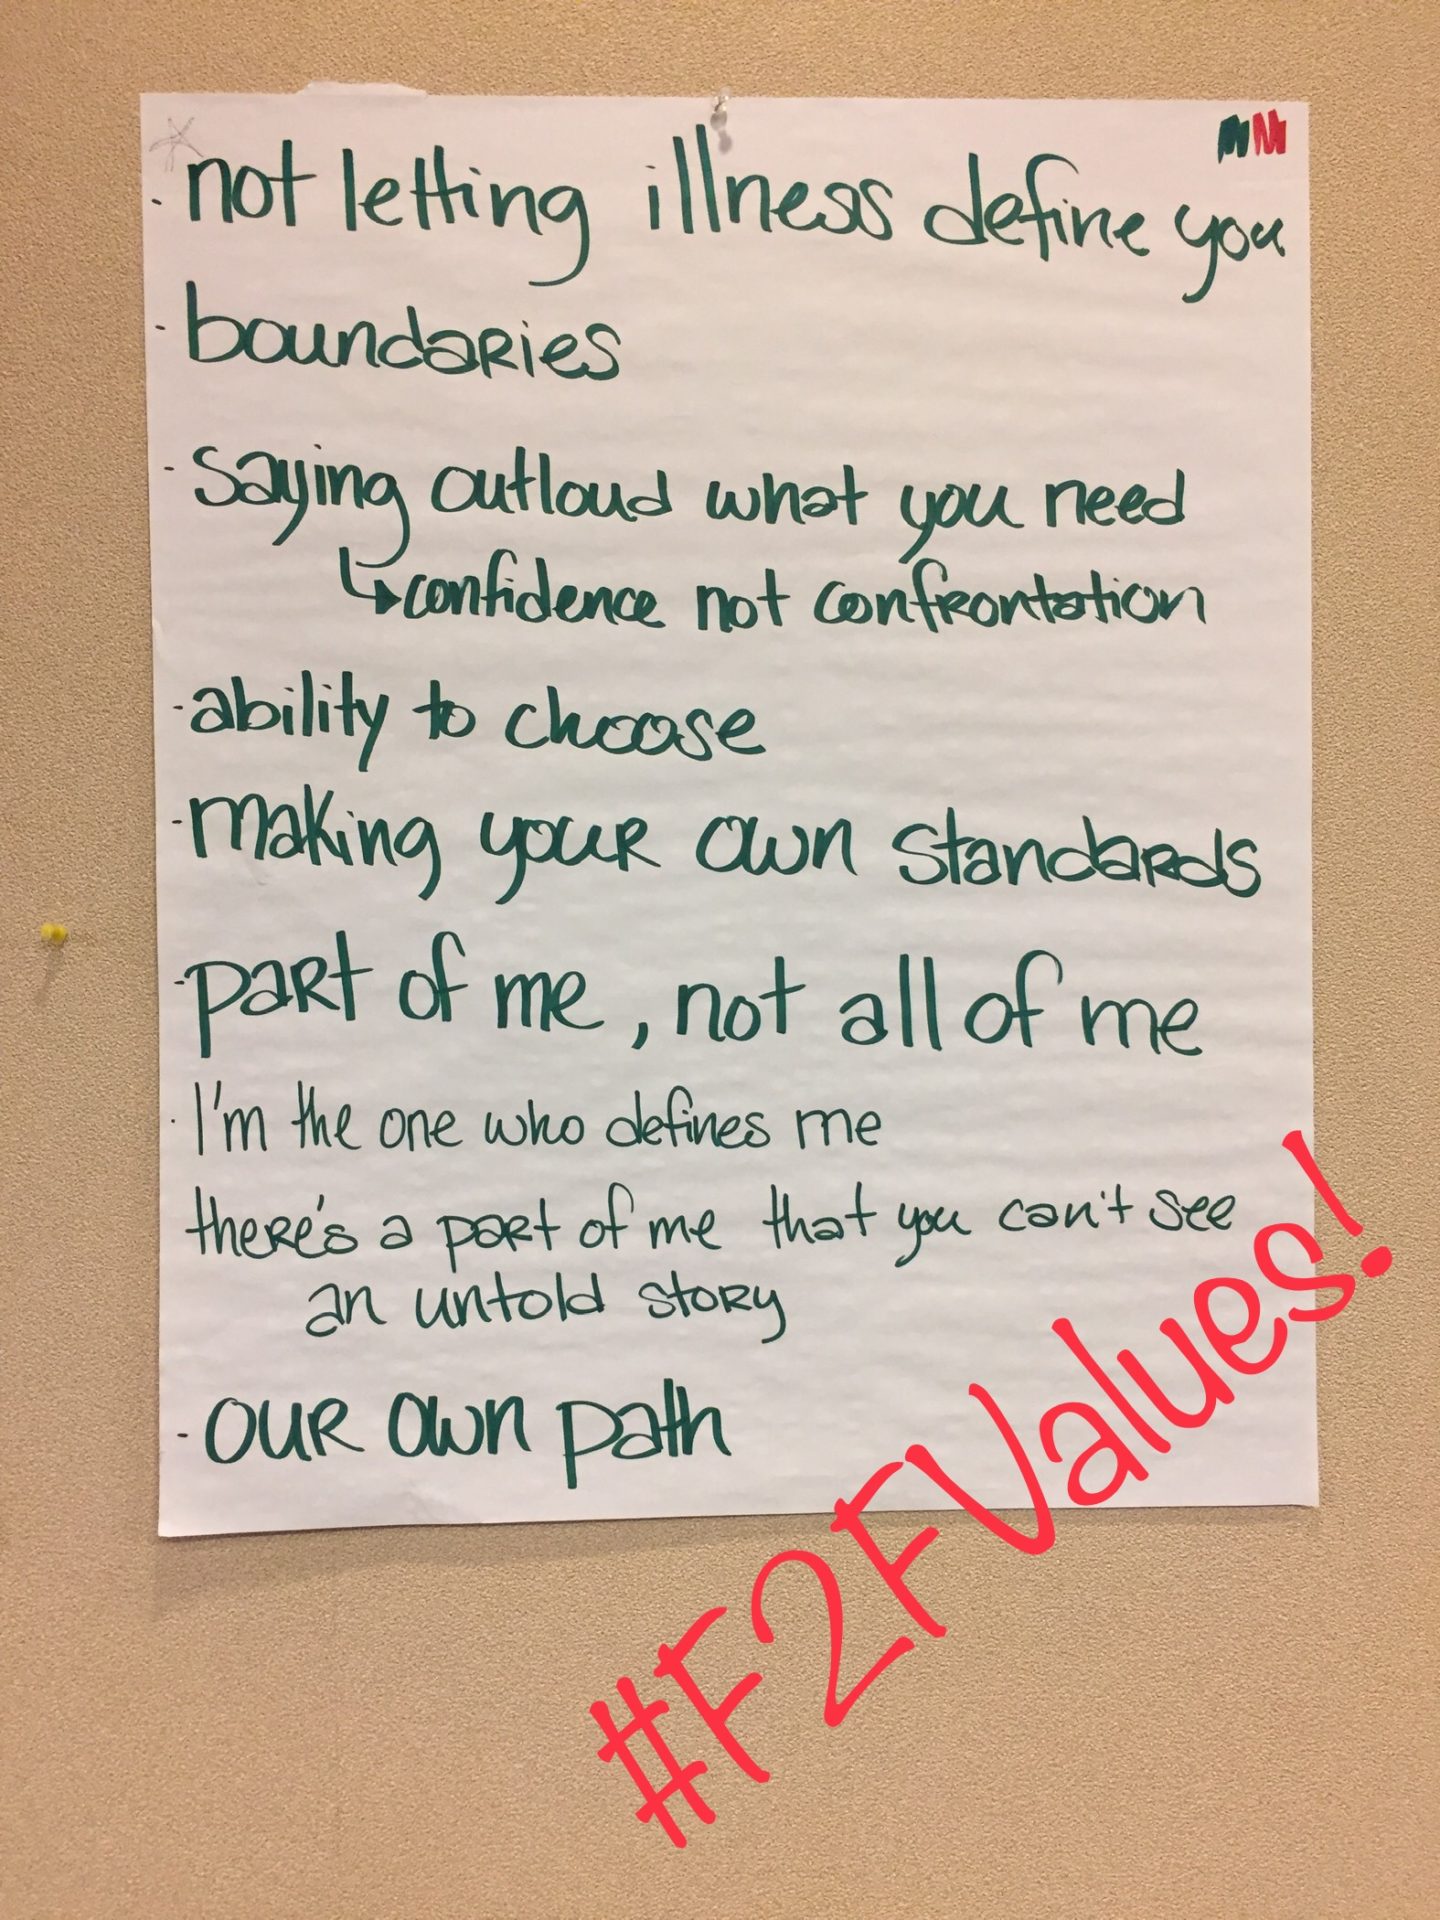 · not letting illness define you
· boundaries
· saying outloud what you need
↳ confidence not confrontation
· ability to choose
· making your own standards
· part of me, not all of me
· I'm the one who defines me
there's a part of me that you can't see
an untold story
· our own path
#F2FValues!